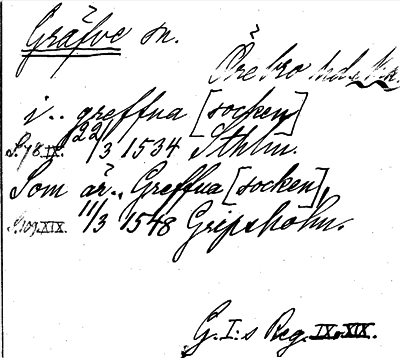 Gräfve sn.
Örebro
i.. greffua [socken]
S. 78. IX. 22/3 1534 Sthlm.
Som är.. Greffua [socken],
S. 107. XIX. 11/3 1548 Gripsholm.
G. I:s Reg. IX. XIX.